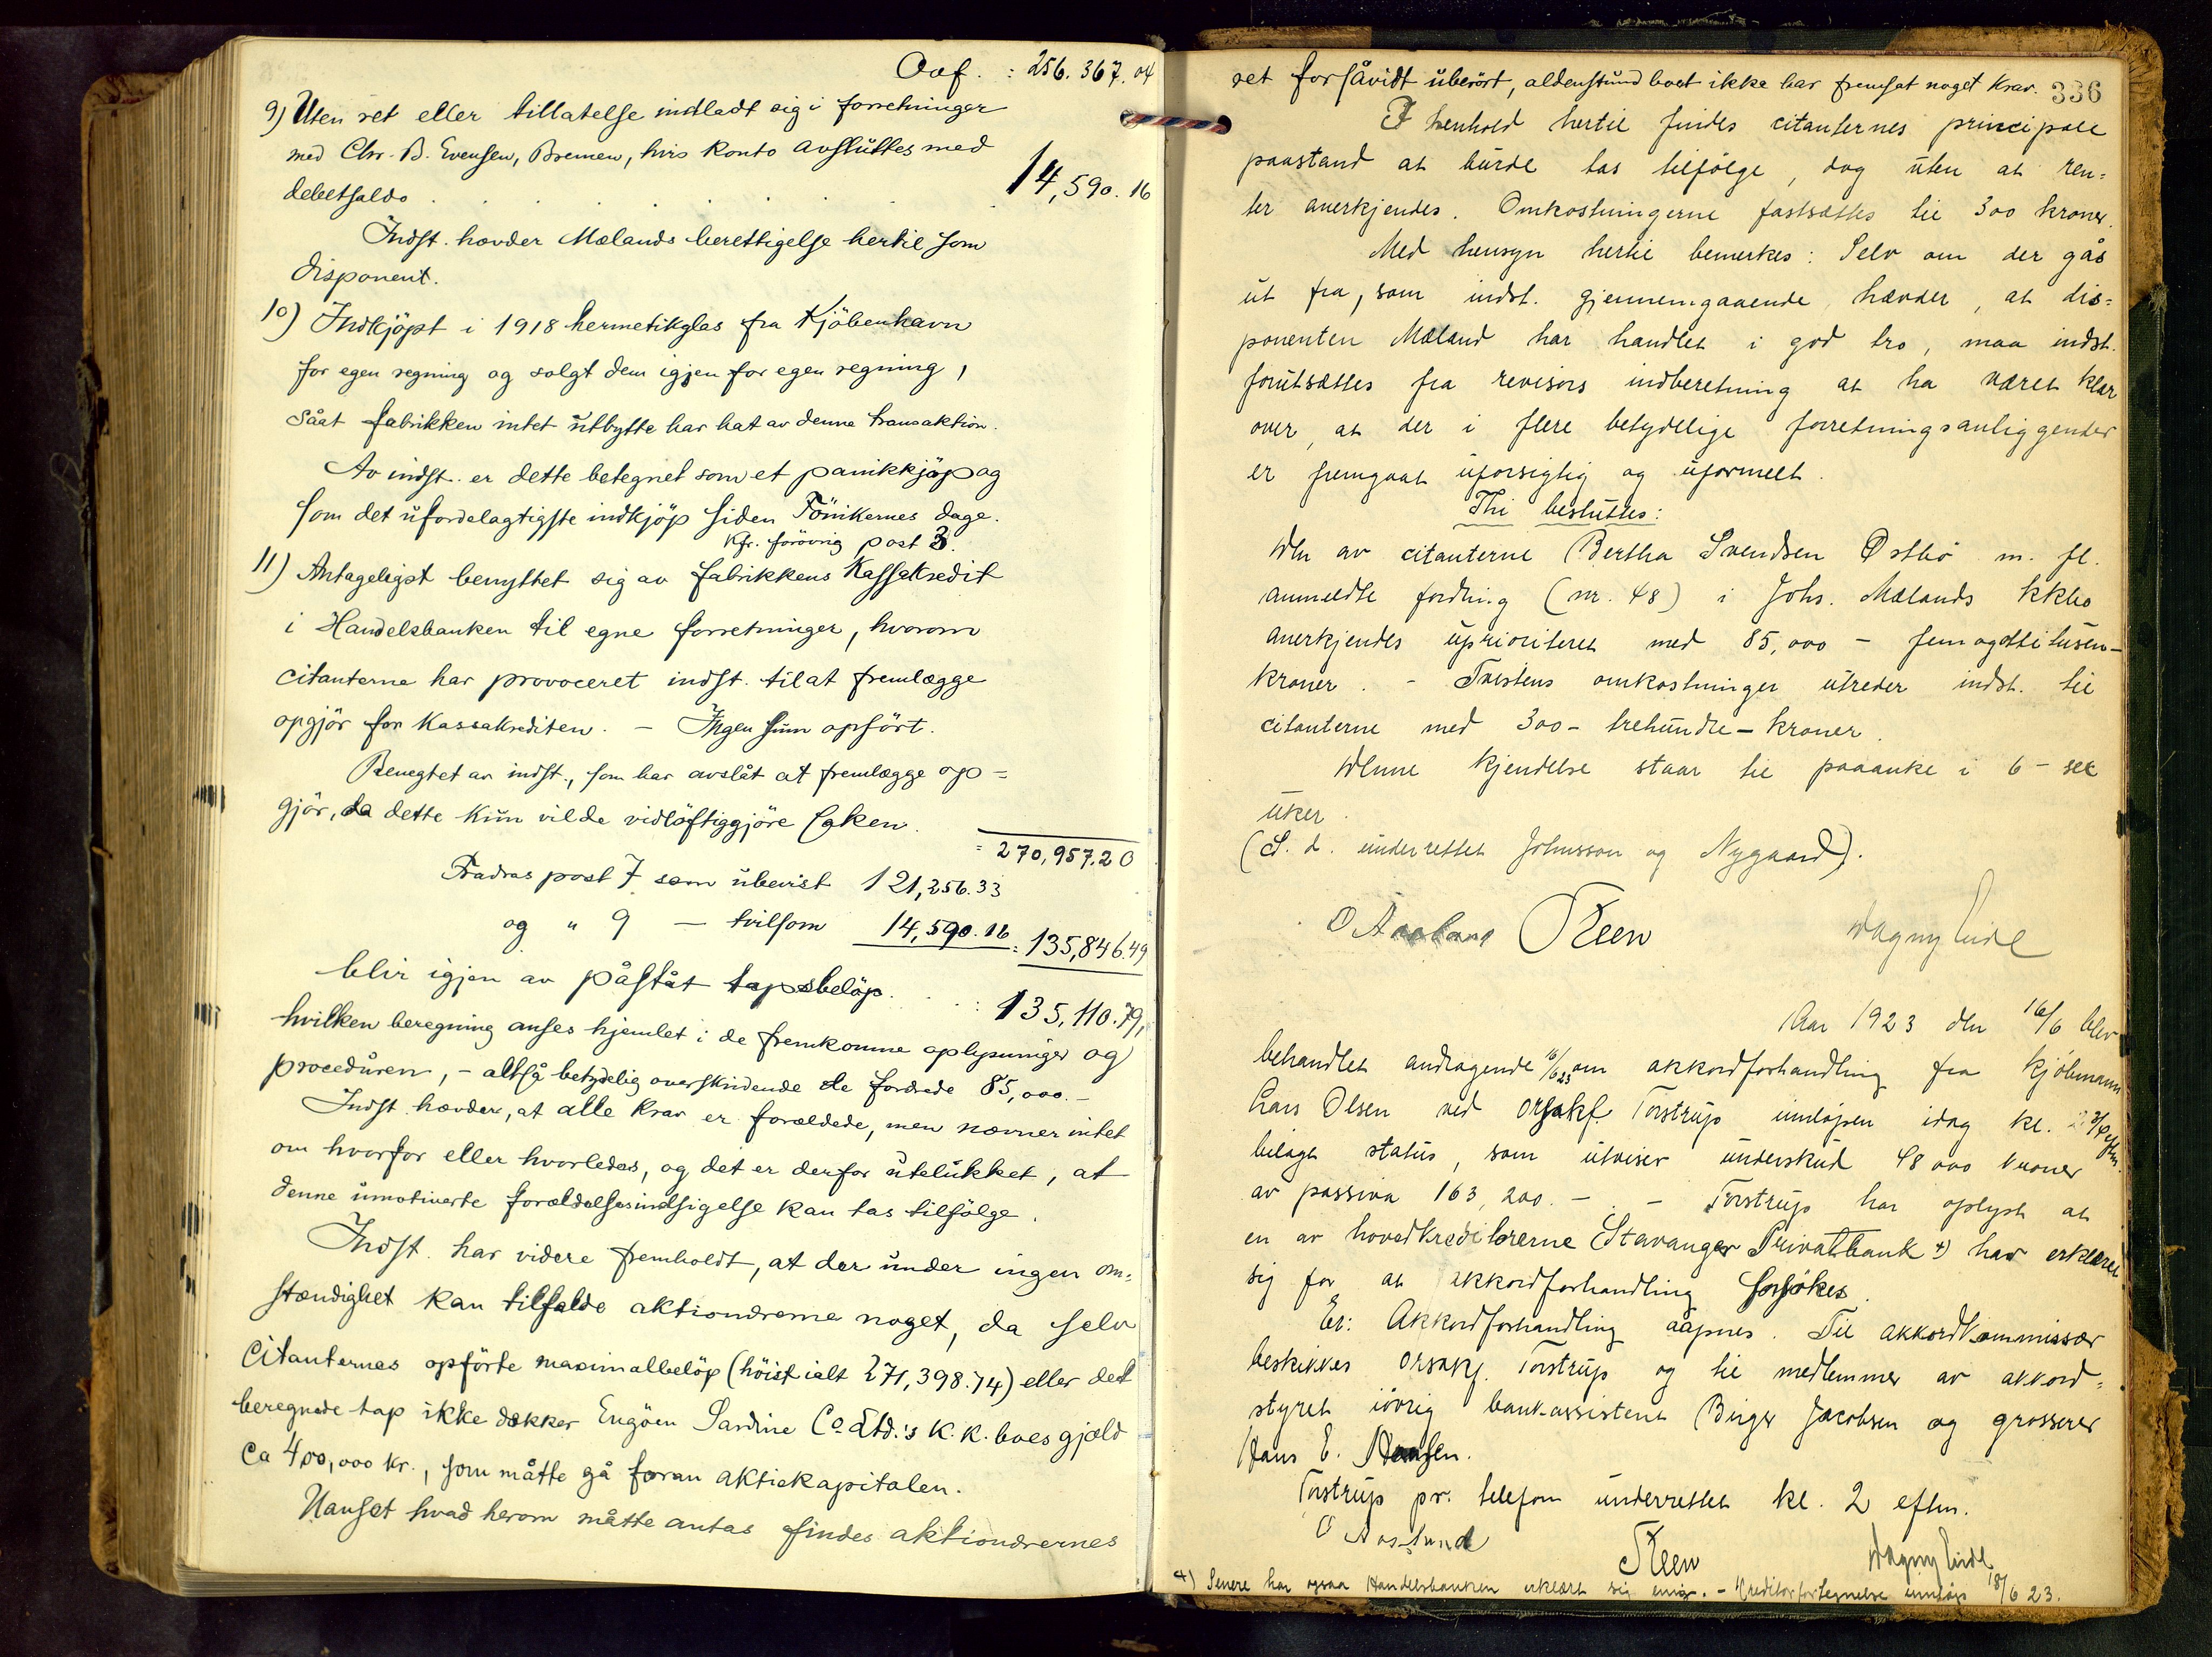 Ovf. : 256.367.04
9) Uten ret eller tillatelse indladt sig i forretninger
med Chr. B. Evensen, Bremen, hvis konto avsluttes med
debetsaldo . . . . . . 14,590.16
Indst. hævder Mælands berettigelse hertil som
disponent.
10) Indkjöpt i 1918 hermetikglas fra Kjöbenhavn
for egen regning og solgt dem igjen for egen regning,
såat fabrikken intet utbytte har hat av denne transaktion.
Av indst. er dette betegnet som et panikkjöp og
som det ufordelagtigste indkjöp siden Fönikernes dage.
Kfr. forövrig post 3.
11) Antageligst benyttet sig av fabrikkens Kassakredit
i Handelsbanken til egne forretninger, hvorom
citanterne har provoceret indst. til at fremlægge
opgjör for Kassakrediten. – Ingen sum opfört.
Benegtet av indst., som har avslåt at fremlægge op=
gjör, da dette kun vilde vidlöftiggjöre saken.
= 270,957.20
Fradras post 7 som ubevist 121,256.33
og " 9 – tvilsom 14,590.16 = 135,846.49
blir igjen av påståt tapsbelöp . . . : 135,110.79,
hvilken beregning anses hjemlet i de fremkomne oplysninger og
proceduren, – altså betydelig overskridende de fordrede 85,000.–
Indst. hævder, at alle krav er forældede, men nævner intet
om hvorfor eller hvorledes, og det er derfor utelukket, at
denne umotiverte forældelsesindsigelse kan tas tilfölge.
Indst. har videre fremholdt, at der under ingen om=
stændighet kan tilfalde aktionærerne noget, da selv
citanternes opförte maximalbelöp (höist ialt 271,398.74) eller det
beregnede tap ikke dækker Engöen Sardine Co Ltd.'s K.K. boes gjæld
ca 400,000 kr., som måtte gå foran aktiekapitalen.
Uanset hvad herom måtte antas findes aktionærernes
336
ret forsåvidt uberört, aldenstund boet ikke har fremsat noget krav.
I henhold hertil findes citanternes principale
paastand at burde tas tilfølge, dog uten at ren=
ter anerkjendes. Omkostningerne fastsættes til 300 kroner.
Med hensyn hertil bemerkes: Selv om der gås
ut fra, som indst. gjennemgaaende hævder, at dis=
ponenten Mæland har handlet i god tro, maa indst.
forutsættes fra revisors indberetning at ha været klar
over, at der i flere betydelige forretningsanliggender
er fremgaat uforsigtig og uformelt.
Thi besluttes:
Den av citanterne Bertha Svendsen Østbö m. fl.
anmeldte fordring (nr. 48) i Johs. Mælands kkbo
anerkjendes uprioritert med 85,000 – femogottitusen–
kroner. – Tvistens omkostninger utreder indst. til
citanterne med 300 – trehundre – kroner.
Denne kjendelse staar til paaanke i 6 – sex
uker.
(S. d. underrettet Johnsson og Nygaard).
O Aasland Steen Dagny Eide
Aar 1923 den 16/6 blev
behandlet andragende 16/6 23 om akkordforhandling fra kjöbmann
Lars Olsen ved orsakf. Torstrup innløpen idag kl.
bilagt status, som utviser underskud 48 000 kroner
av passiva 163,200.– . – Torstrup har oplyst at
en av hovedkreditorerne Stavanger Privatbank +) har erklæret
sig for at akkordforhandling forsökes.
Er: Akkordforhandling aapnes. Til akkordkommissær
beskikkes orsakf. Torstrup og til medlemmer av akkord=
styret iövrig bankassistent Birger Jacobsen og grosserer
Hans E. Hansen.
Torstrup pr. telefon underrettet kl. 2 eftm.
O Aasland Steen Dagny Eide
+) Senere har ogsaa Handelsbanken erklært sig enig. – Kreditorfortegnelse innløp 18/6 23.